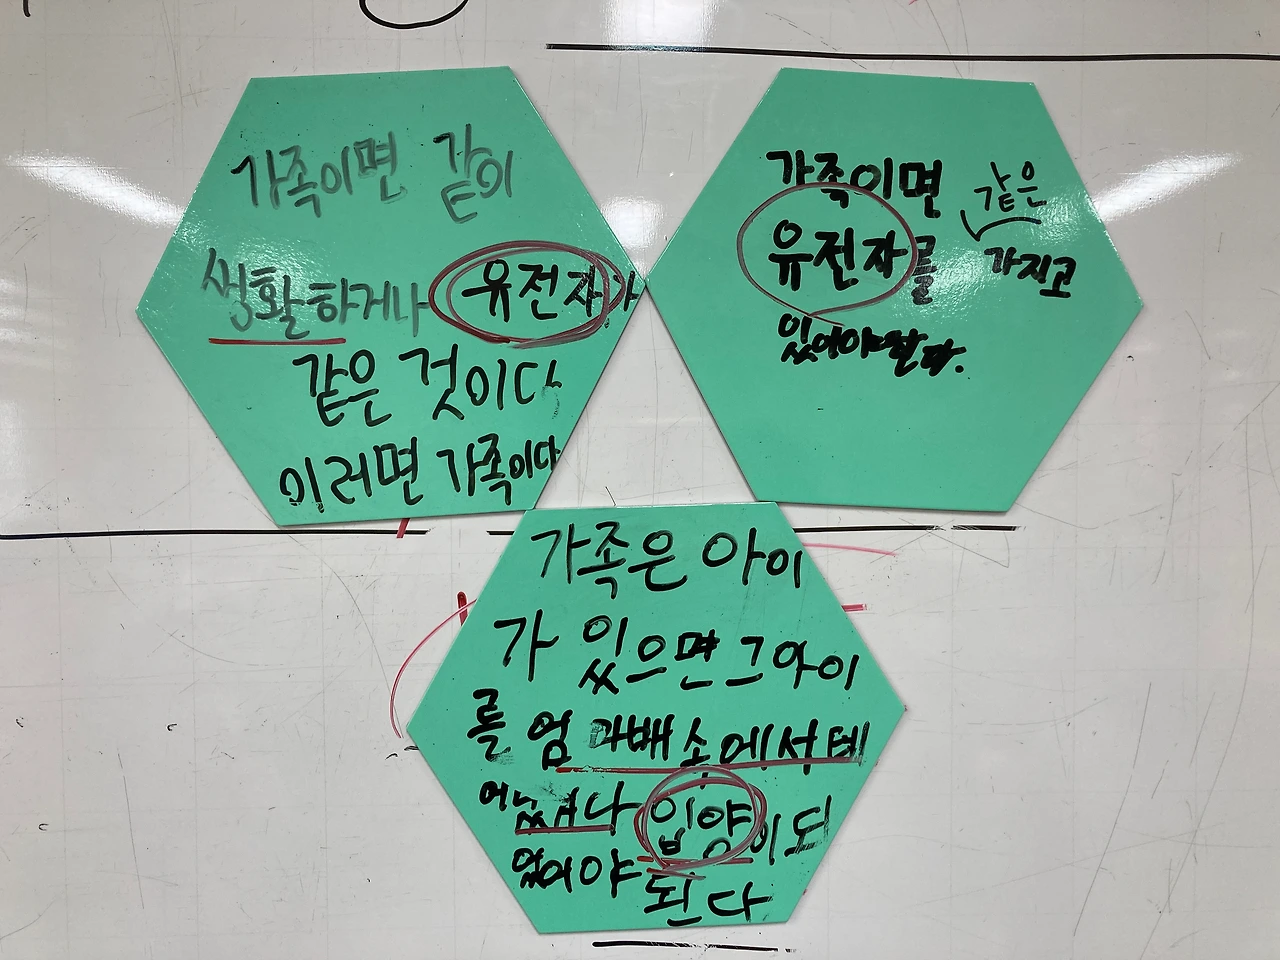 가족이면 같이
생활하거나 유전자가
같은 것이다
이러면 가족이다
가족이면 같은
유전자를 가지고
있어야한다.
가족은 아이
가 있으면 그아이
를 엄마배속에서테
어났거나 입양이되
있어야
된다